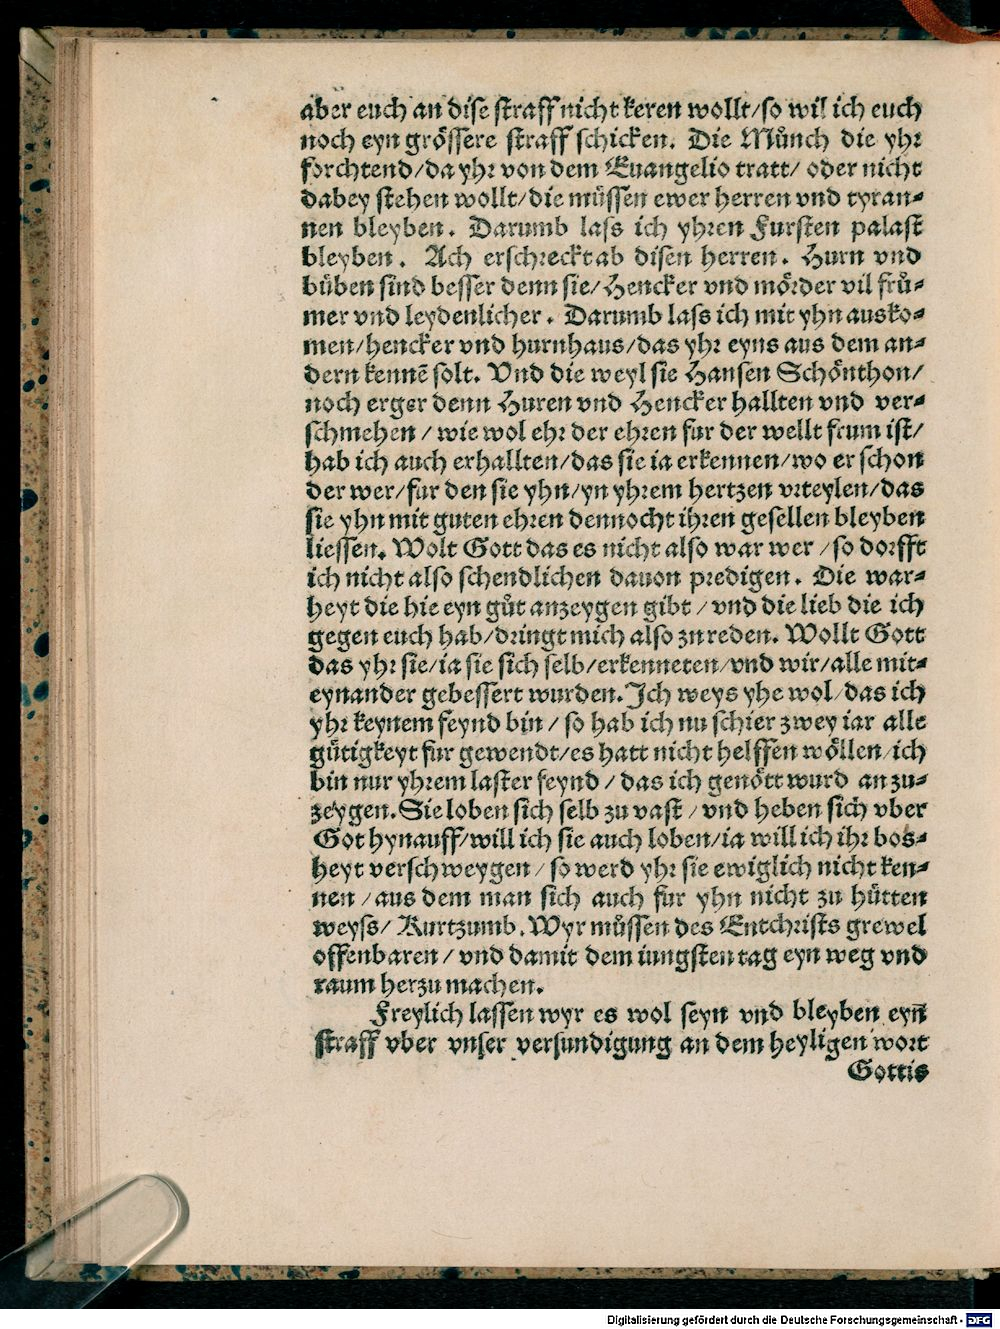 aber euch an dise straff nicht keren wollt/so wil ich euch
noch eyn grössere straff schicken. Die Můnch die yhr
forchtend/da yhr von dem Euangelio tratt/ oder nicht
dabey stehen wollt/die müssen ewer herren vnd tyran-
nen bleyben. Darumb lass ich yhren Fursten palast
bleyben. Ach erschreckt ab disen herren. Hurn vnd
bůben sind besser denn sie/Hencker vnd mörder vil frů-
mer vnd leydenlicher. Darumb lass ich mit yhn ausko-
men/hencker vnd hurnhaus/das yhr eyns aus dem an-
dern kennē solt. Vnd die weyl sie Hansen Schönthon/
noch erger denn Huren vnd Hencker hallten vnd ver-
schmehen/wie wol ehr der ehren fur der wellt frum ist/
hab ich auch erhallten/das sie ia erkennen/wo er schon
der wer/fur den sie yhn/yn yhrem hertzen vrteylen/das
sie yhn mit guten ehren dennocht ihren gesellen bleyben
liessen. Wolt Gott das es nicht also war wer/so dorfft
ich nicht also schendlichen dauon predigen. Die war-
heyt die hie eyn gůt anzeygen gibt/vnd die lieb die ich
gegen euch hab/dringt mich also zu reden. Wollt Gott
das yhr sie/ia sie sich selb/erkenneten/vnd wir/alle mit-
eynander gebessert wurden. Ich weys yhe wol/das ich
yhr keynem feynd bin/so hab ich nu schier zwey iar alle
gůtigkeyt fur gewendt/es hatt nicht helffen wöllen/ich
bin nur yhrem laster feynd/das ich genött wurd an zu-
zeygen. Sie loben sich selb zu vast/vnd heben sich vber
Got hynauff/will ich sie auch loben/ia will ich ihr bos-
heyt verschweygen/so werd yhr sie ewiglich nicht ken-
nen/aus dem man sich auch fur yhn nicht zu hütten
weyss/ Kurtzumb. Wyr můssen des Entchrists grewel
offenbaren/vnd damit dem iungsten tag eyn weg vnd
raum herzu machen.
Freylich lassen wyr es wol seyn vnd bleyben eyn̄
straff vber vnser versundigung an dem heyligen wort
Gottis
Digitalisierung gefördert durch die Deutsche Forschungsgemeinschaft - DFG